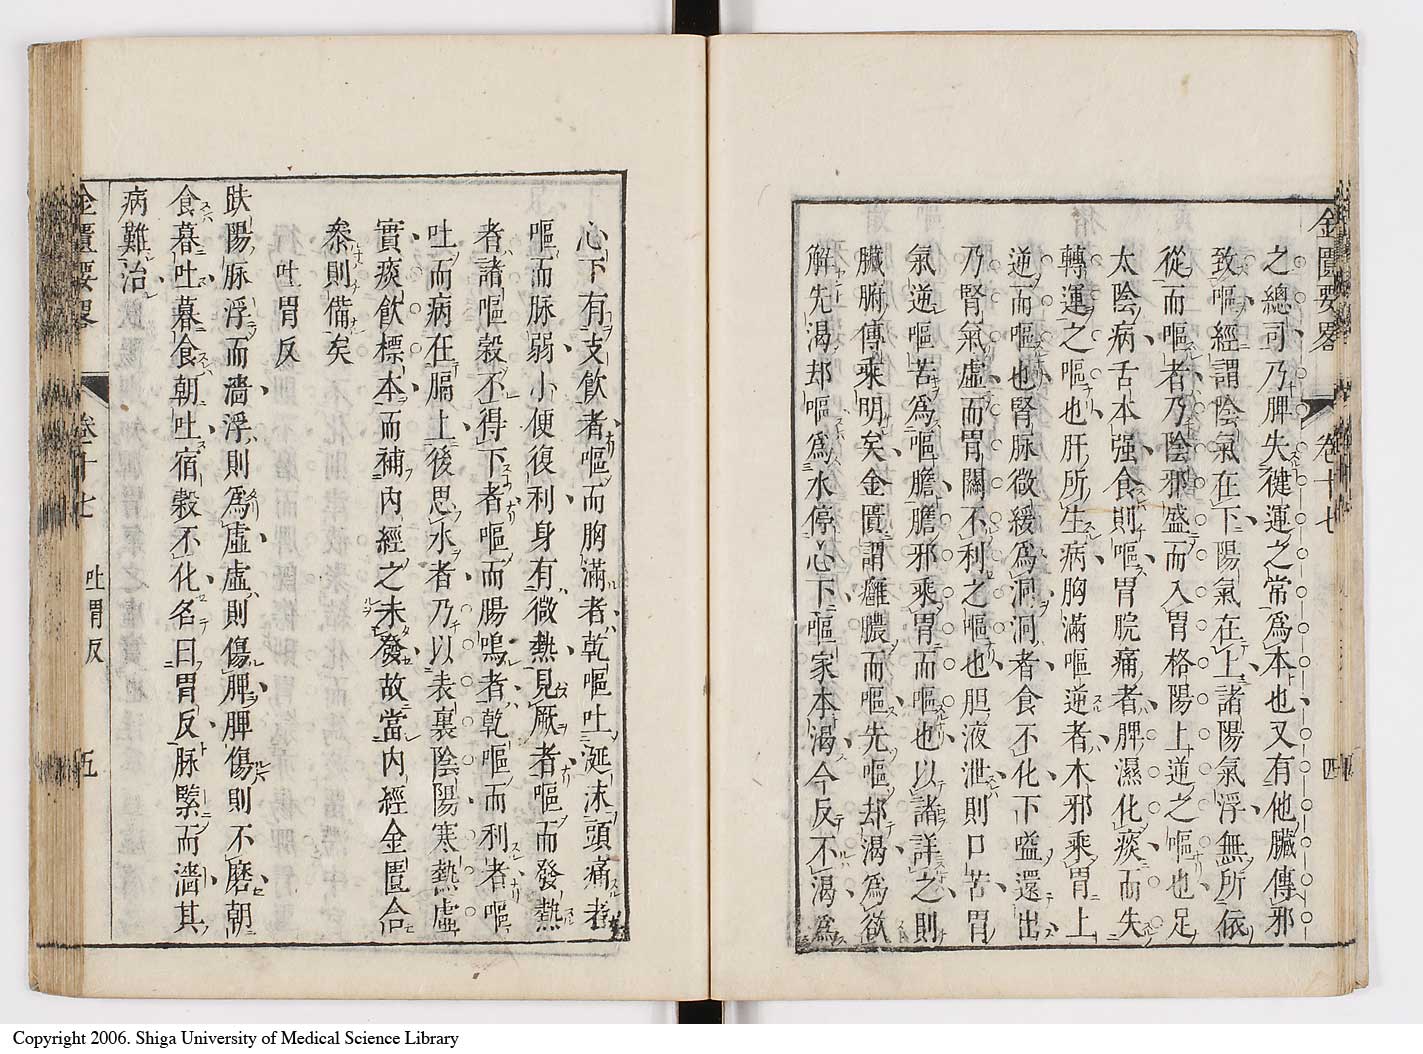 金匱要畧 卷十七 四
之總司乃脾失健運之常爲本也又有他臟傳邪
致嘔經謂陰氣在下陽氣在上諸陽氣浮無所依
從而嘔者乃陰邪盛而入胃格陽上逆之嘔也足
太陰病舌本強食則嘔胃脘痛者脾濕化痰而失
轉運之嘔也肝所生病胸滿嘔逆者木邪乘胃上
逆而嘔也腎脉微緩爲洞洞者食不化下嗌還出
乃腎氣虛而胃關不利之嘔也胆液泄則口苦胃
氣逆嘔苦爲嘔膽膽邪乘胃而嘔也以諸詳之則
臟腑傳乘明矣金匱謂癰膿而嘔先嘔却渴爲欲
解先渴却嘔爲水停心下嘔家本渴今反不渴爲
心下有支飲者嘔而胸滿者乾嘔吐涎沫頭痛者
嘔而脉弱小便復利身有微熱見厥者嘔而發熱
者諸嘔穀不得下者嘔而腸鳴者乾嘔而利者嘔
吐而病在膈上後思水者乃以表裏陰陽寒熱虛
實痰飲標本而補內經之未發故當內經金匱合
叅則備矣
吐胃反
趺陽脉浮而濇浮則爲虛虛則傷脾脾傷則不磨朝
食暮吐暮食朝吐宿穀不化名曰胃反脉緊而濇其
病難治
金匱要畧 卷十七 吐胃反 五
Copyright 2006. Shiga University of Medical Science Library